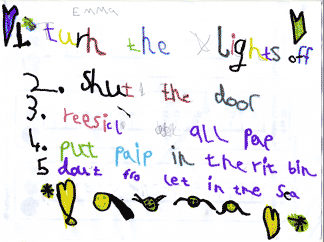 Emma
1. turn the lights off
2. Shut the door
3. reesicl all pap
4. put paip in the rit bin
5 dout fro let in the Sea